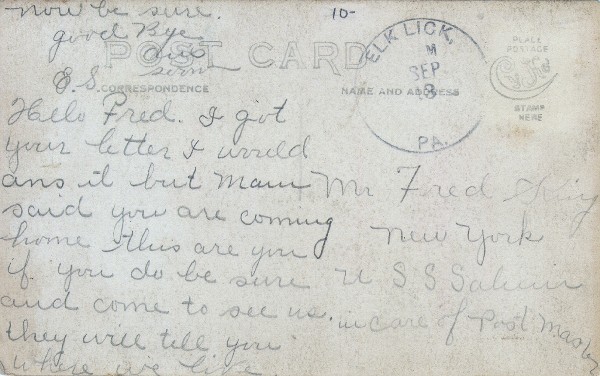 now be sure.
good Bye
ans
soon
E.S.
10-
POST CARD
CORRESPONDENCE
NAME AND ADDRESS
ELK LICK,
M
SEP
3
PA.
PLACE
POSTAGE
STAMP
HERE
Hello Fred. I got
your letter I would
ans it but mam
said you are coming
home this are you
if you do be sure
and come to see us.
they will tell you
where we live.
Mr Fred King
New York
U S S Salem
in care of Post Master